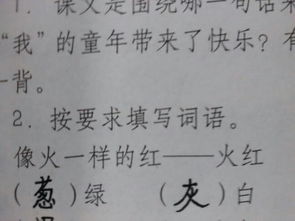 1. 课文是围绕哪一句话来
“我”的童年带来了快乐？有
一背。
2. 按要求填写词语。
像火一样的红——火红
（葱）绿 （灰）白